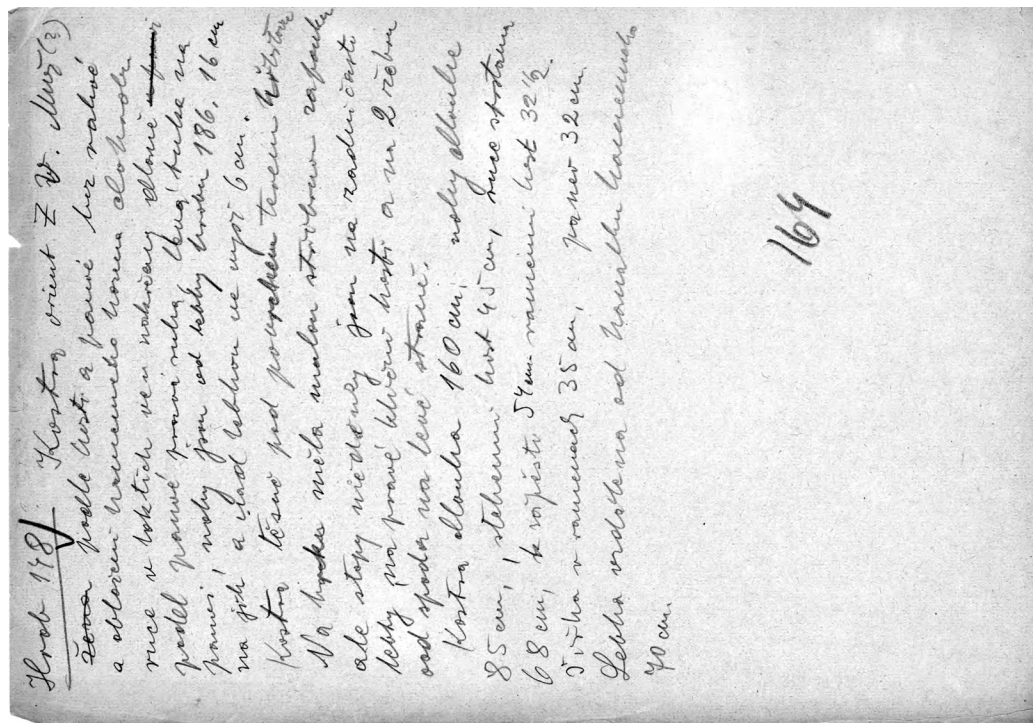 Hrob 178/ Kostra orient Z V. Muž(?)
žena podle kostí a pánve bez rakve
a obložení kamenného kolem
ruce v loktích ven nakrčeny dlaně
podél pánve pravá ruka levá ruka na
pánvi nohy jsou od lebky hrobu 186. 16 cm
na jih a nad lebkou ve výši 6 cm.
Kostra těsně pod povrchem terénu
Na krku měla malou stříbrnou záponku
ale stopy měděnky jsou na zadní části
lebky, na pravé klíční kosti a na 2 žebru
od spoda na levé straně.
Kostra dlouhá 160 cm, nohy dlouhé
85 cm, stehenní kost 45 cm, ruce
68 cm, k zápěstí 54 cm ramenní kost 32 1/2
Šířka v ramenech 35 cm, pánev 32 cm.
Lebka vzdálena od kamenného
70 cm
164